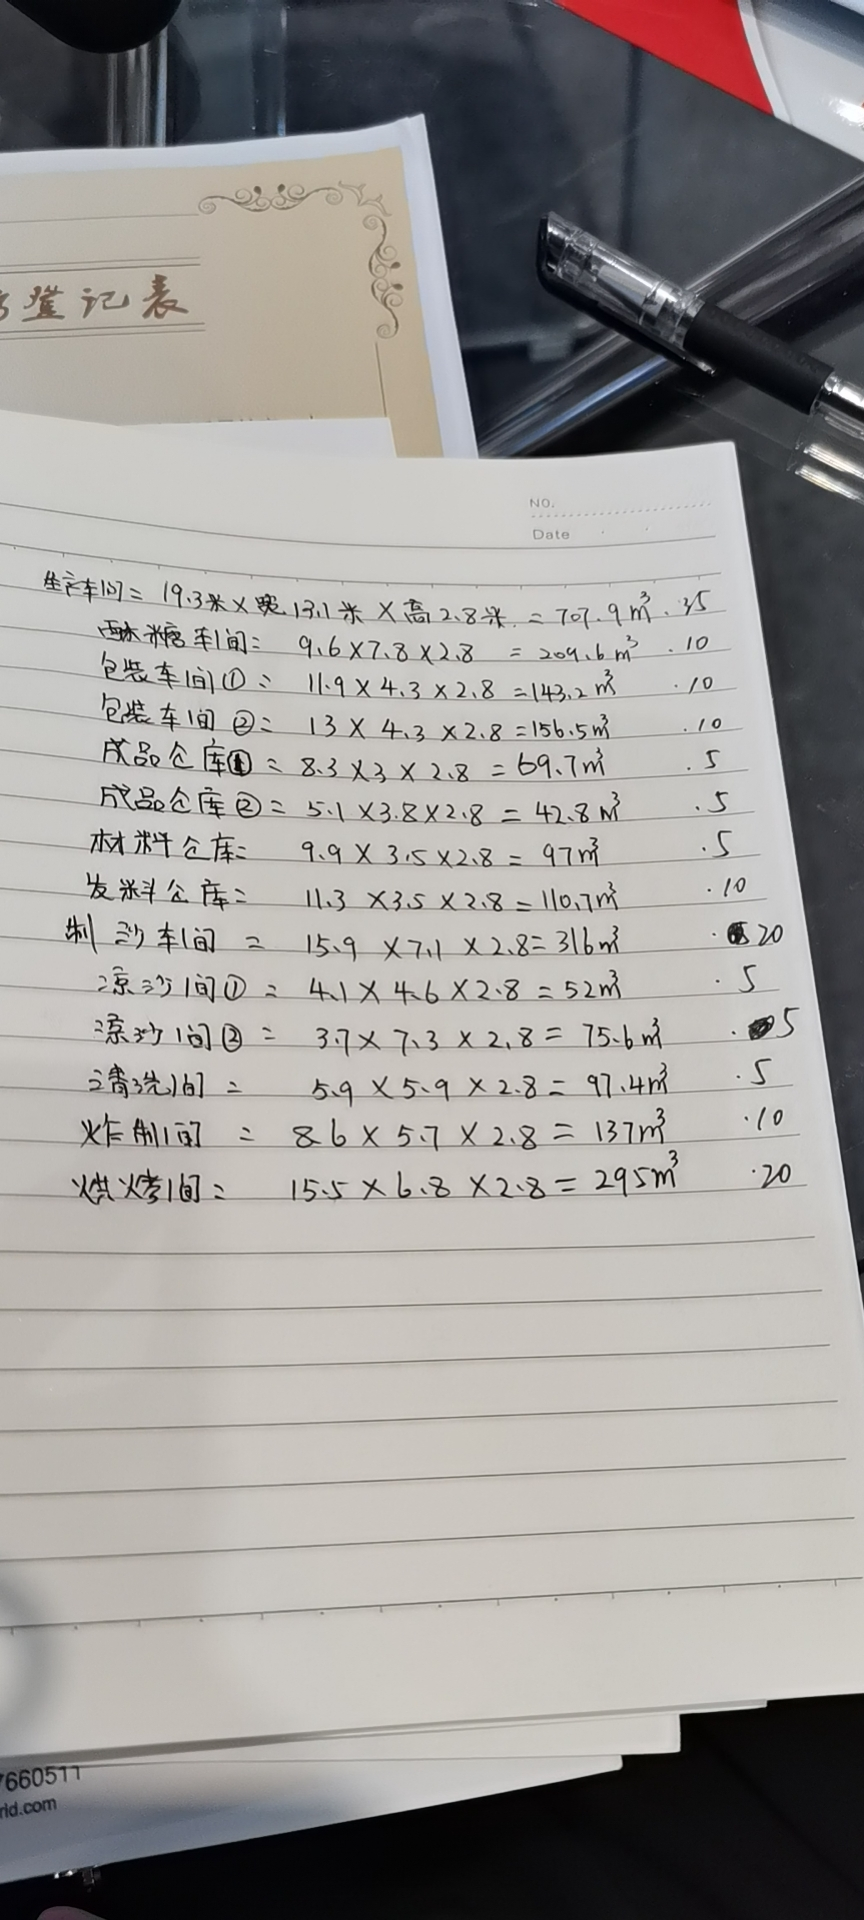 登记表
NO.
Date
生产车间= 19.3米×宽13.1米×高2.8米.=707.9m³.35
酥糖车间= 9.6×7.8×2.8 =209.6m³.10
包装车间①= 11.9×4.3×2.8=143.2m³.10
包装车间②= 13×4.3×2.8=156.5m³.10
成品仓库①=8.3×3×2.8=69.7m³.5
成品仓库②=5.1×3.8×2.8=42.8m³.5
材料仓库= 9.9×3.5×2.8=97m³.5
发料仓库= 11.3×3.5×2.8=110.7m³.10
制沙车间= 15.9×7.1×2.8=316m³.20
凉沙间①=4.1×4.6×2.8=52m³.5
凉沙间②= 3.7×7.3×2.8=75.6m³.5
清洗间= 5.9×5.9×2.8=97.4m³.5
炸制间=8.6×5.7×2.8=137m³.10
烘烤间= 15.5×6.8×2.8=295m³.20
7660511
rld.com